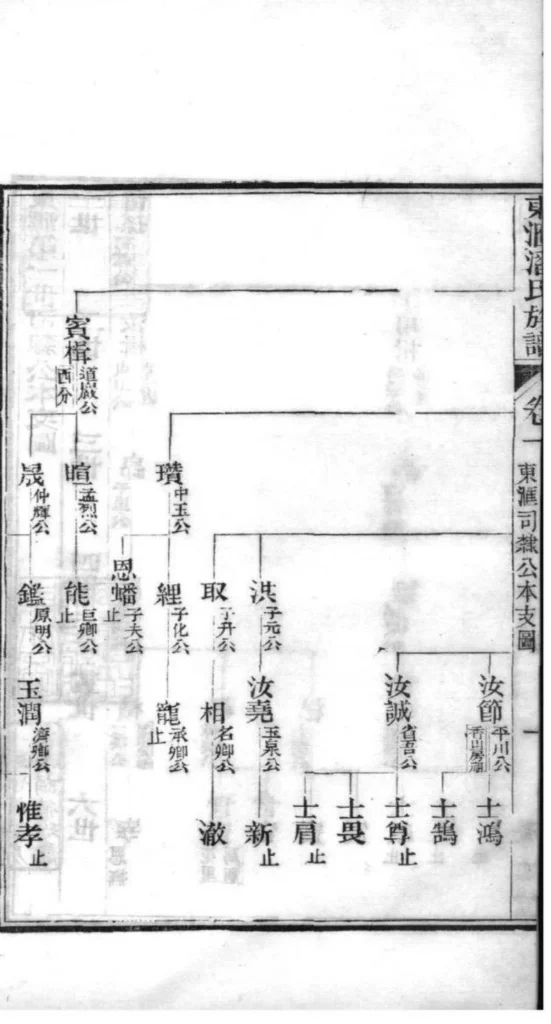 東滙潘氏族譜
卷一
東滙司隸公本支圖
一
賓楫 道巖公 西分
瓚 中玉公
暄 孟烈公
晟 仲輝公
洪 子元公
取 子升公
經 子化公
恩蟠 子夫公 止
能 巨卿公 止
鑑 原明公
汝節 平川公
汝誠 省吾公
汝堯 玉泉公
相 名卿公
寵 承卿公 止
玉潤 濟卿公
士鴻
士鵠
士尊 止
士畏
士肩 止
新 止
澈
惟孝 止